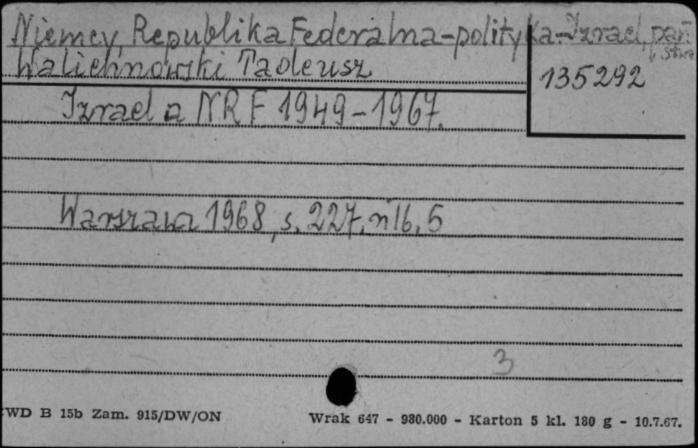 Niemcy, Republika Federalna-polityka-Izrael, pań
stwo
Walichnowski Tadeusz
135292
Izrael a NRF 1949-1967.
Warszawa 1968, s. 227, nlb. 5
3
CWD B 15b Zam. 915/DW/ON
Wrak 647 - 980.000 - Karton 5 kl. 180 g - 10.7.67.